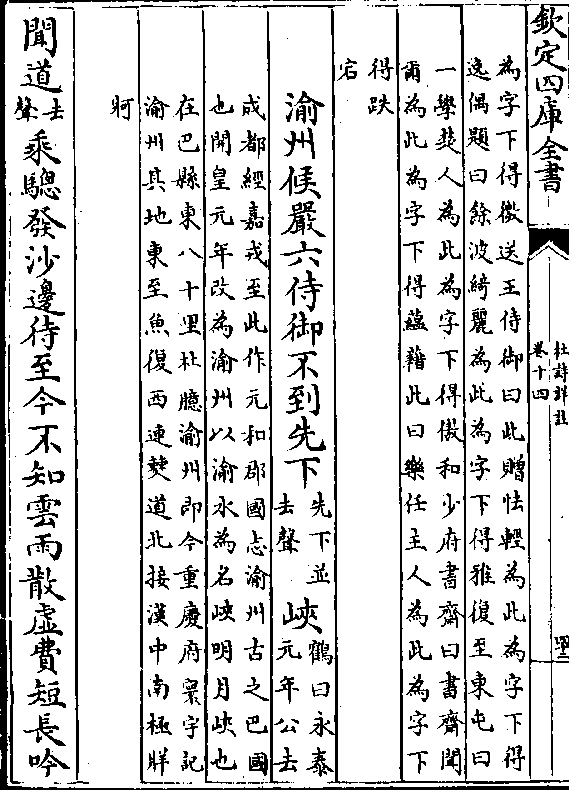 欽定四庫全書
杜詩詳註
卷十四
四三
為字下得傲送王侍御曰此贈怯輕為此為字下得
逸偶題曰餘波綺麗為此為字下得雅復至東屯曰
一學楚人為此為字下得傲和少府書齋曰書齋聞
爾為此為字下得蘊藉此曰樂任主人為此為字下
得跌
宕
渝州候嚴六侍御不到先下
先下並
去聲
峽
鶴曰永泰
元年公去
成都經嘉戎至此作元和郡國志渝州古之巴國
也開皇元年改為渝州以渝水為名峽明月峽也
在巴縣東八十里杜臆渝州即今重慶府寰宇記
渝州其地東至魚復西連僰道北接漢中南極牂
牁
聞道
去
聲
乘驄發沙邊待至今不知雲雨散虛費短長吟